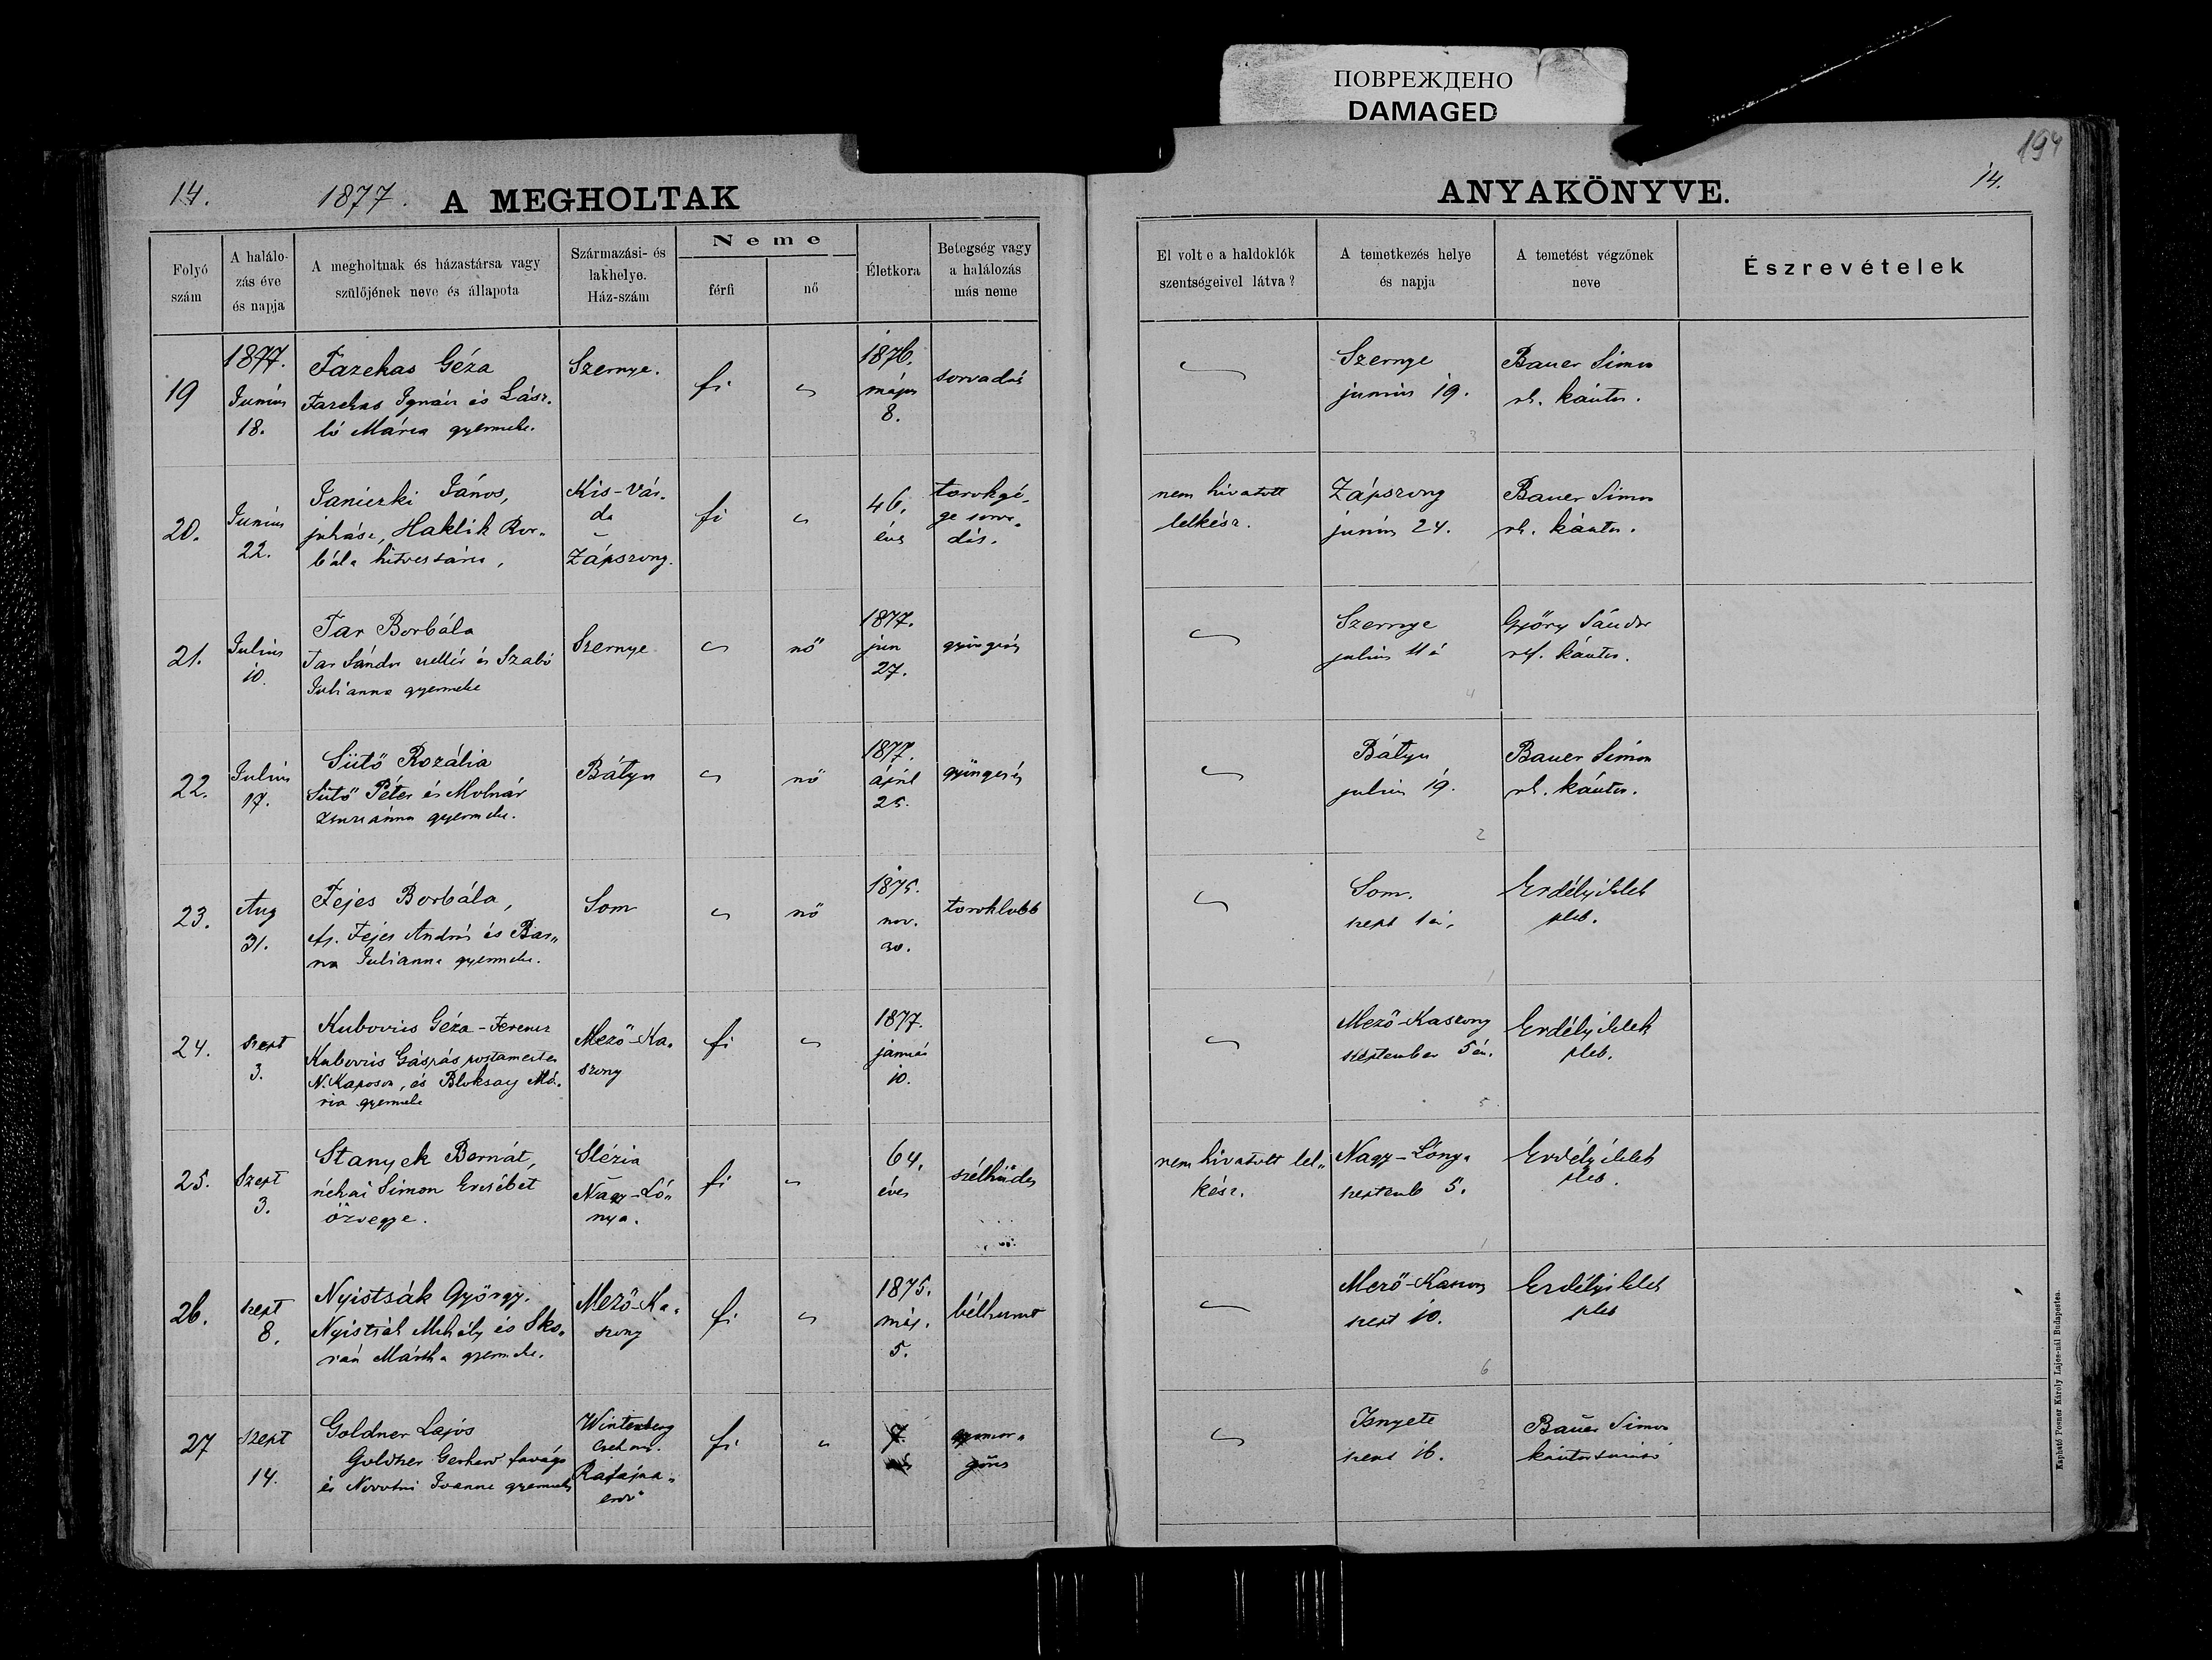 ПОВРЕЖДЕНО
DAMAGED
194
14.
1877.
A MEGHOLTAK
ANYAKÖNYVE.
14.
Folyó
szám
A halálo-
zás éve
és napja
A megholtnak és házastársa vagy
szülőjének neve és állapota
Származási- és
lakhelye.
Ház-szám
Neme
férfi
nő
Életkora
Betegség vagy
a halálozás
más neme
El volt e a haldoklók
szentségeivel látva?
A temetkezés helye
és napja
A temetést végzőnek
neve
Észrevételek
19
1877.
Junius
18.
Fazekas Géza
Fazekas Ignácz és Lász-
ló Mária gyermeke.
Szernye.
fi
1876.
május
8.
sorvadás
Szernye
junius 19.
3
Bauer Simon
rk. kántor.
20.
Junius
22.
Janiczki János,
juhász, Haklik Bor-
bála hitvestársa,
Kis-Vár-
da
Zápszony.
fi
46.
éves
torokgé-
ge sorva-
dás.
nem hivatott
lelkész.
Zápszony
junius 24.
1
Bauer Simon
rk. kántor.
21.
Julius
10.
Tar Borbála
Tar Sándor zsellér és Szabó
Julianna gyermeke
Szernye
nő
1877.
jun
27.
gyöngeség
Szernye
julius 11 én
4
Győry Sándor
ref. kántor.
22.
Julius
17.
Sütő Rozália
Sütő Péter és Molnár
Zsuzsánna gyermeke.
Bátyu
nő
1877.
ápril
25.
gyöngeség
Bátyu
julius 19.
2
Bauer Simon
rk. kántor.
23.
Aug
31.
Fejes Borbála,
Fejes András és Bar-
na Julianna gyermeke.
Som
nő
1875.
nov.
30.
toroklobb
Som.
szept 1 én.
1
Erdélyi Elek
pleb.
24.
Szept
3.
Kubovics Géza-Ferencz
Kubovics Gáspár postamester
N. Kaposon, és Bloksay Má-
ria gyermeke
Mező-Ka-
szony
fi
1877.
január
10.
Mező-Kaszony
szeptember 5 én.
5
Erdélyi Elek
pleb.
25.
Szept
3.
Stanyek Bernát,
néhai Simon Erzsébet
özvegye.
Slézia
Nagy-Ló-
nya.
fi
64.
éves
szélhüdés
nem hivatott lel-
kész.
Nagy-Lónya
septemb 5.
1
Erdélyi Elek
pleb.
26.
Szept
8.
Nyistsák György.
Nyistsák Mihály és Sko-
ván Mártha gyermeke.
Mező-Ka-
szony
fi
1875.
máj.
5.
bélhurut
Mező-Kaszony
szept 10.
6
Erdélyi Elek
pleb
27
Szept
14.
Goldner Lajos
Goldner Gerhard favágó
és Novotni Joanna gyermeke
Winterberg
Csehorsz.
Rafajna-
erdő
fi
7.
gyomor-
görcs
Isnyete
szept 16.
2
Bauer Simon
kántortanító
Kapható Posner Károly Lajos-nál Budapesten.